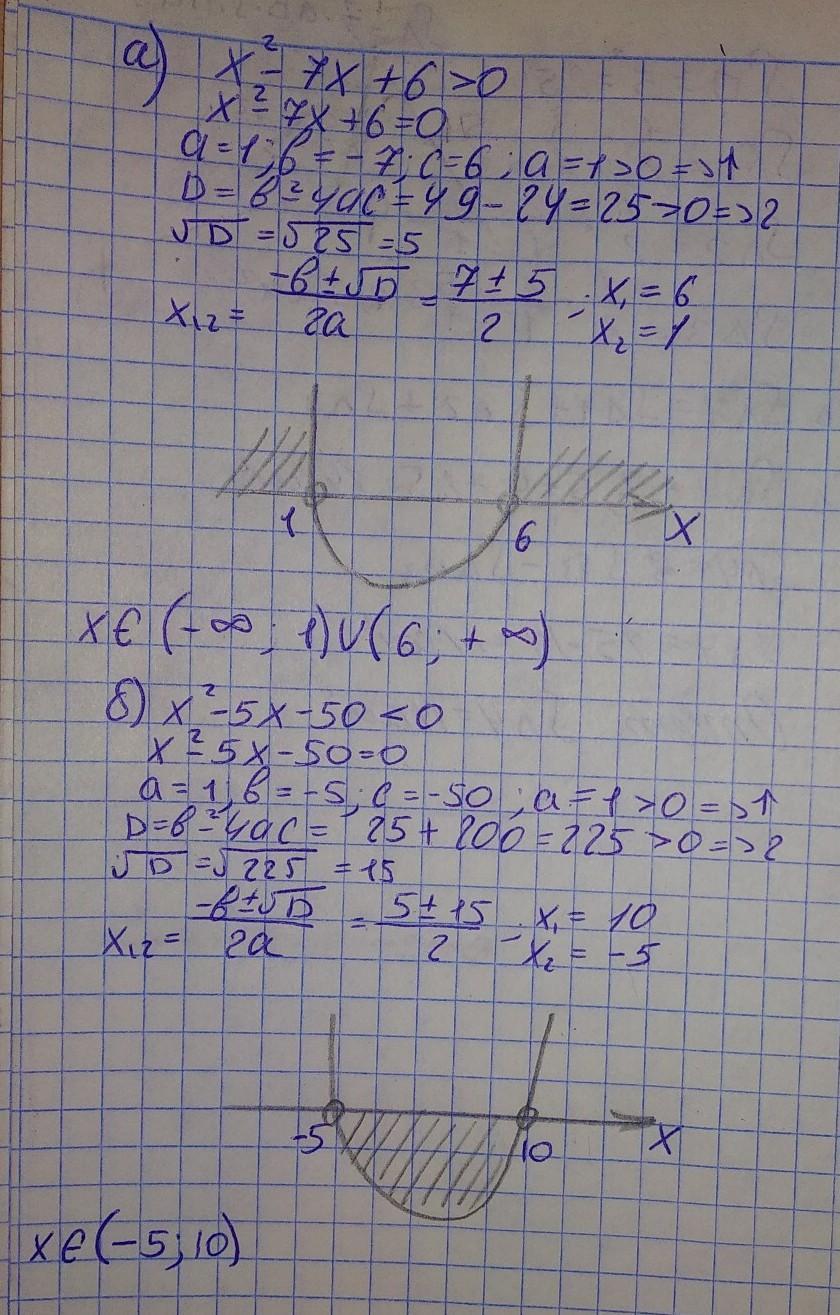 а) x² - 7x + 6 > 0
x² - 7x + 6 = 0
a = 1; в = -7; c = 6; a = 1 > 0 => ↑
D = в² - 4ac = 49 - 24 = 25 > 0 => 2
√D = √25 = 5
x₁,₂ = (-в ± √D)/2a = (7 ± 5)/2; x₁ = 6
x₂ = 1
1 6 x
x ∈ (-∞; 1) ∪ (6; +∞)
б) x² - 5x - 50 < 0
x² - 5x - 50 = 0
a = 1; в = -5; c = -50; a = 1 > 0 => ↑
D = в² - 4ac = 25 + 200 = 225 > 0 => 2
√D = √225 = 15
x₁,₂ = (-в ± √D)/2a = (5 ± 15)/2; x₁ = 10
x₂ = -5
-5 10 x
x ∈ (-5; 10)